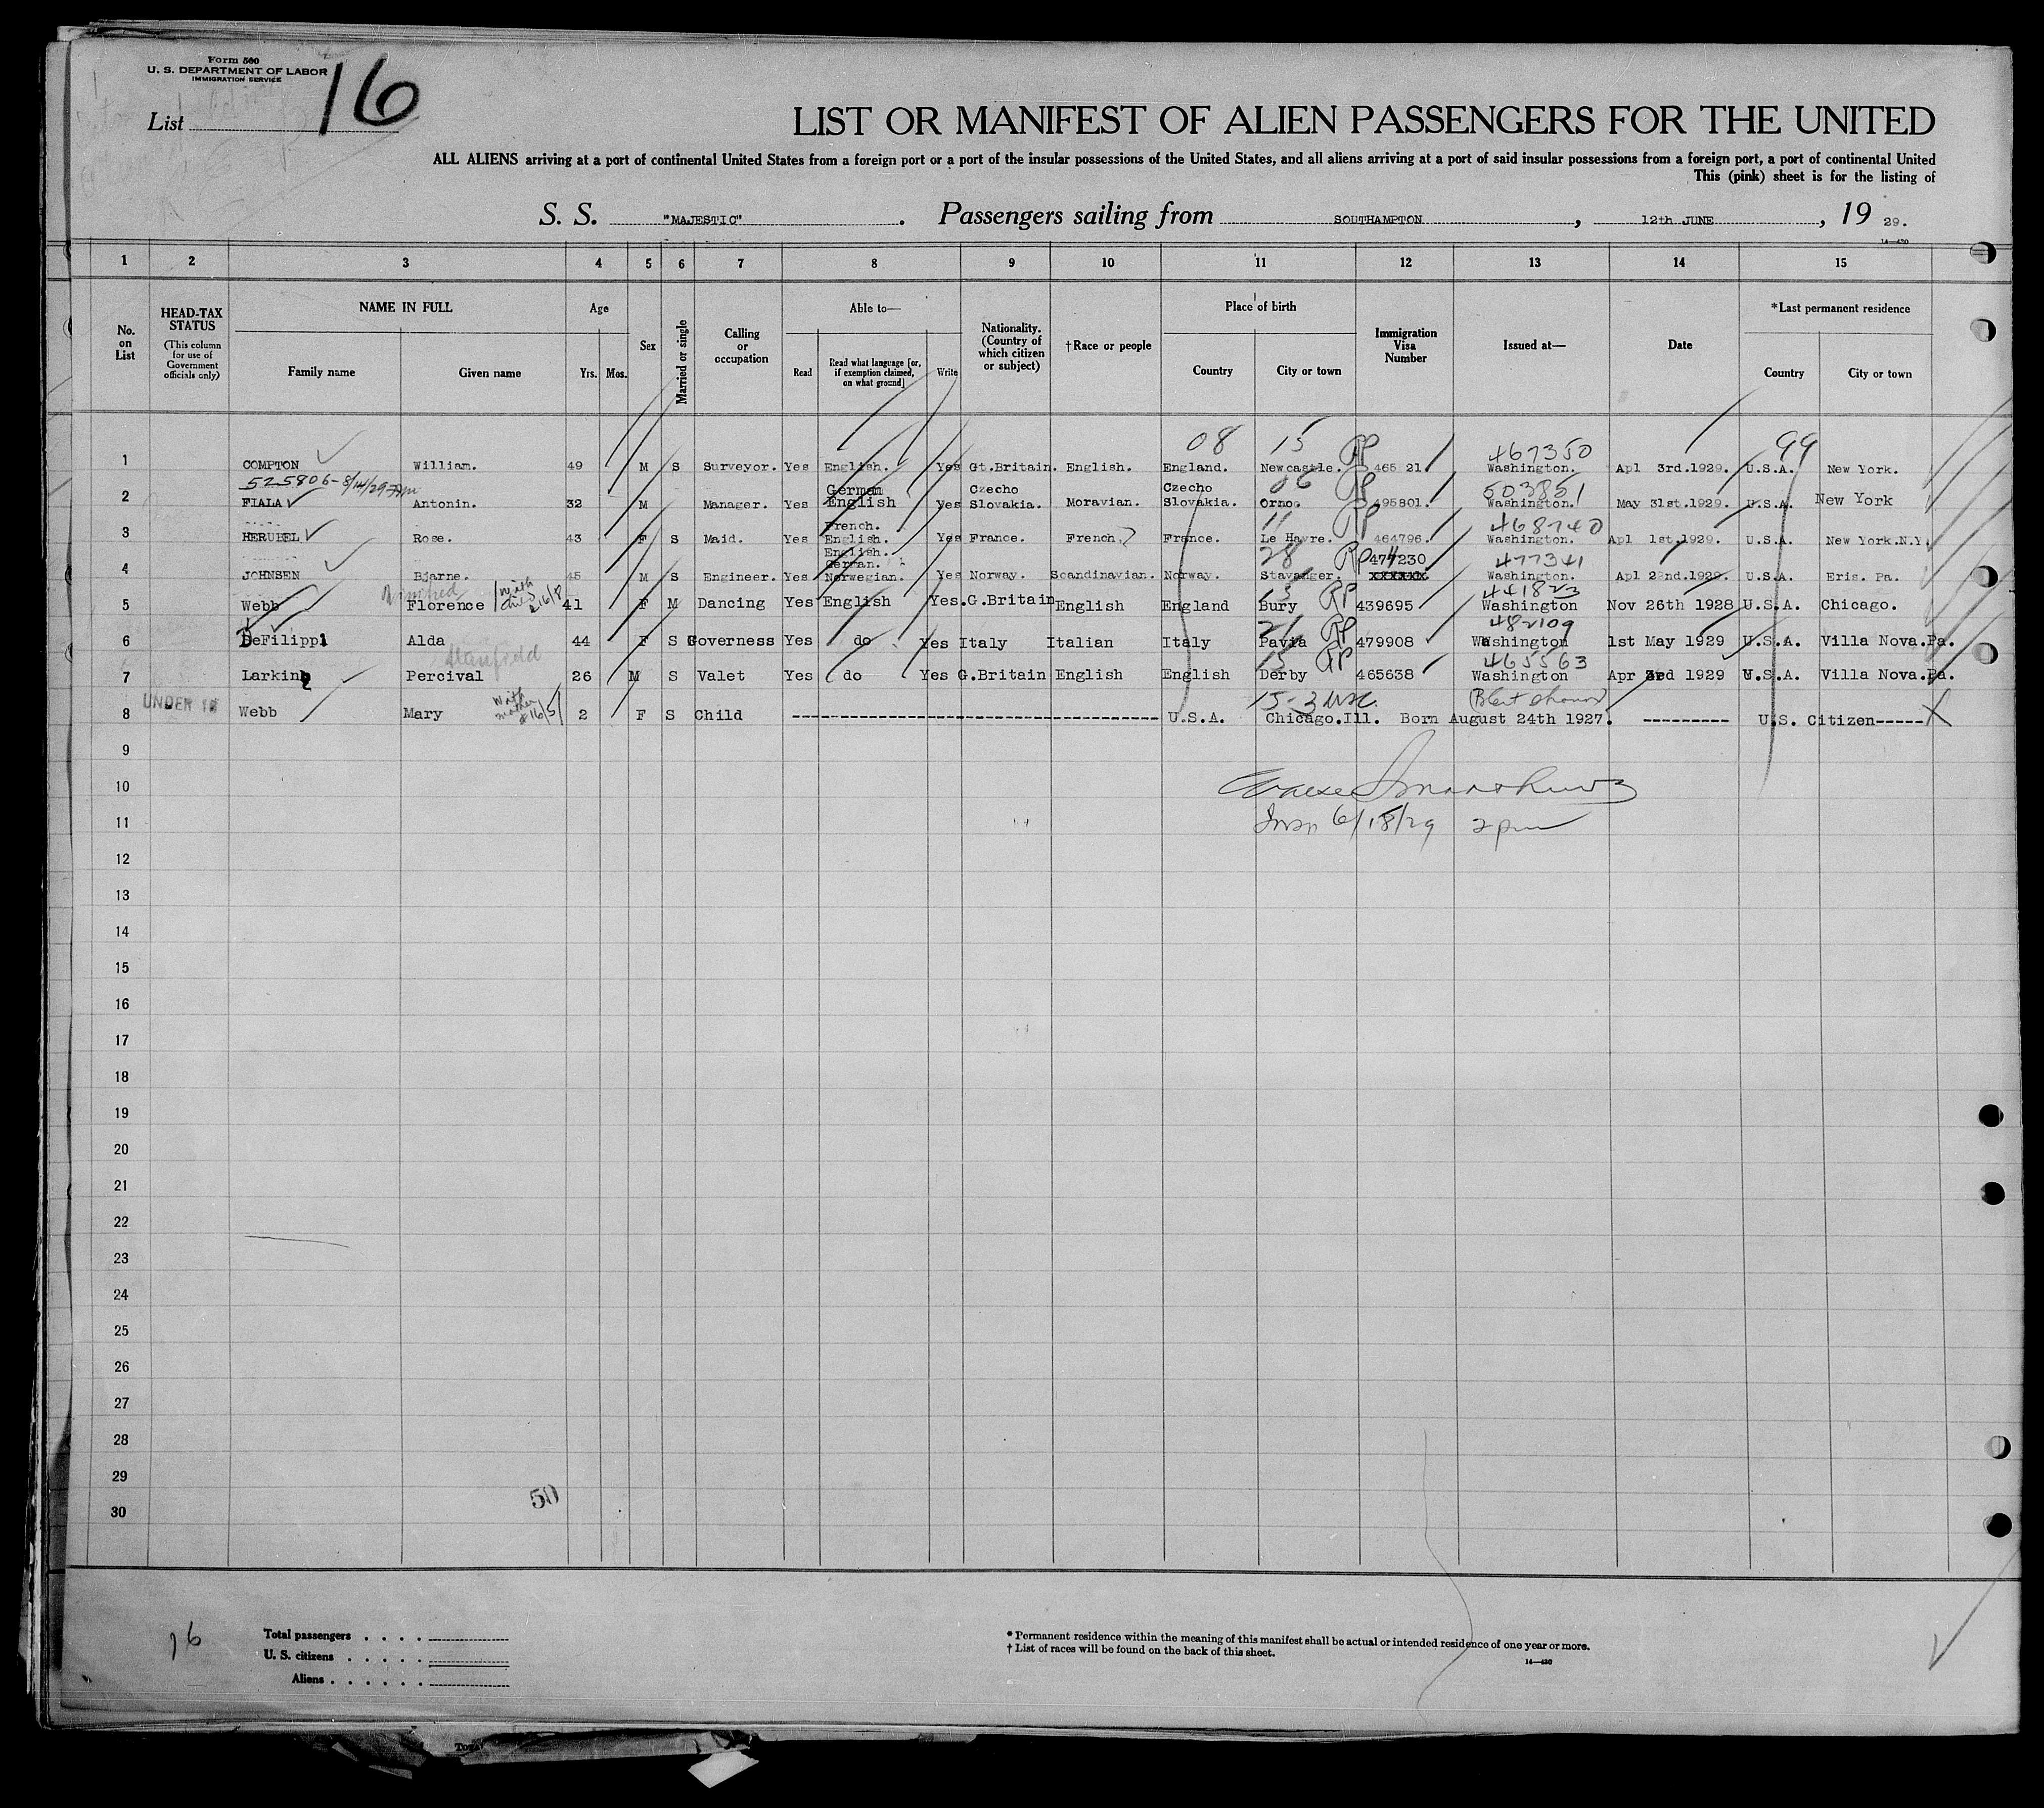 Form 500
U. S. DEPARTMENT OF LABOR
IMMIGRATION SERVICE
List 16
LIST OR MANIFEST OF ALIEN PASSENGERS FOR THE UNITED
ALL ALIENS arriving at a port of continental United States from a foreign port or a port of the insular possessions of the United States, and all aliens arriving at a port of said insular possessions from a foreign port, a port of continental United
This (pink) sheet is for the listing of
S. S. "MAJESTIC". Passengers sailing from SOUTHAMPTON, 12th JUNE, 19 29.
14—430
1 2 3 4 5 6 7 8 9 10 11 12 13 14 15
No. on List
HEAD-TAX STATUS (This column for use of Government officials only)
NAME IN FULL
Family name Given name
Age
Yrs. Mos.
Sex
Married or single
Calling or occupation
Able to—
Read Read what language [or, if exemption claimed, on what ground] Write
Nationality. (Country of which citizen or subject)
†Race or people
Place of birth
Country City or town
Immigration Visa Number
Issued at—
Date
*Last permanent residence
Country City or town
08 15 RP 467350 99
1 COMPTON William. 49 M S Surveyor. Yes English. Yes Gt.Britain. English. England. Newcastle. 465 21. Washington. Apl 3rd.1929. U.S.A. New York.
525806-8/14/29
German Czecho Czecho 06 RP 503851
2 FIALA Antonin. 32 M Manager. Yes English Yes Slovakia. Moravian. Slovakia. Orno. 495801. Washington. May 31st.1929. U.S.A. New York
French. 11 RP 468740
3 HERUBEL Rose. 43 F S Maid. Yes English. Yes France. French. France. Le Havre. 464796. Washington. Apl 1st.1929. U.S.A. New York.N.Y.
English.
German. 28 RP 477230 477341
4 JOHNSEN Bjarne. 45 M S Engineer. Yes Norwegian. Yes Norway. Scandinavian. Norway. Stavanger. xxxxxx Washington. Apl 22nd.1929. U.S.A. Eris. Pa.
with child 16/8 15 RP 441823
5 Webb Florence 41 F M Dancing Yes English Yes. G.Britain English England Bury 439695 Washington Nov 26th 1928 U.S.A. Chicago.
21 RP 482109
6 DeFilippi Alda 44 F S Governess Yes do Yes Italy Italian Italy Pavia 479908 Washington 1st May 1929 U.S.A. Villa Nova.Pa.
15 RP 465563
7 Larking Percival 26 M S Valet Yes do Yes G.Britain English English Derby 465638 Washington Apr 3rd 1929 U.S.A. Villa Nova.Pa.
UNDER 16 with mother #16/5
8 Webb Mary 2 F S Child ---------- U.S.A. Chicago.Ill. Born August 24th 1927. --------- U.S. Citizen-----
9
10
11 6/18/29 2 pm
12
13
14
15
16
17
18
19
20
21
22
23
24
25
26
27
28
29
50
30
16
Total passengers . . . .
U. S. citizens . . . . .
Aliens . . . . . .
* Permanent residence within the meaning of this manifest shall be actual or intended residence of one year or more.
† List of races will be found on the back of this sheet.
14—430